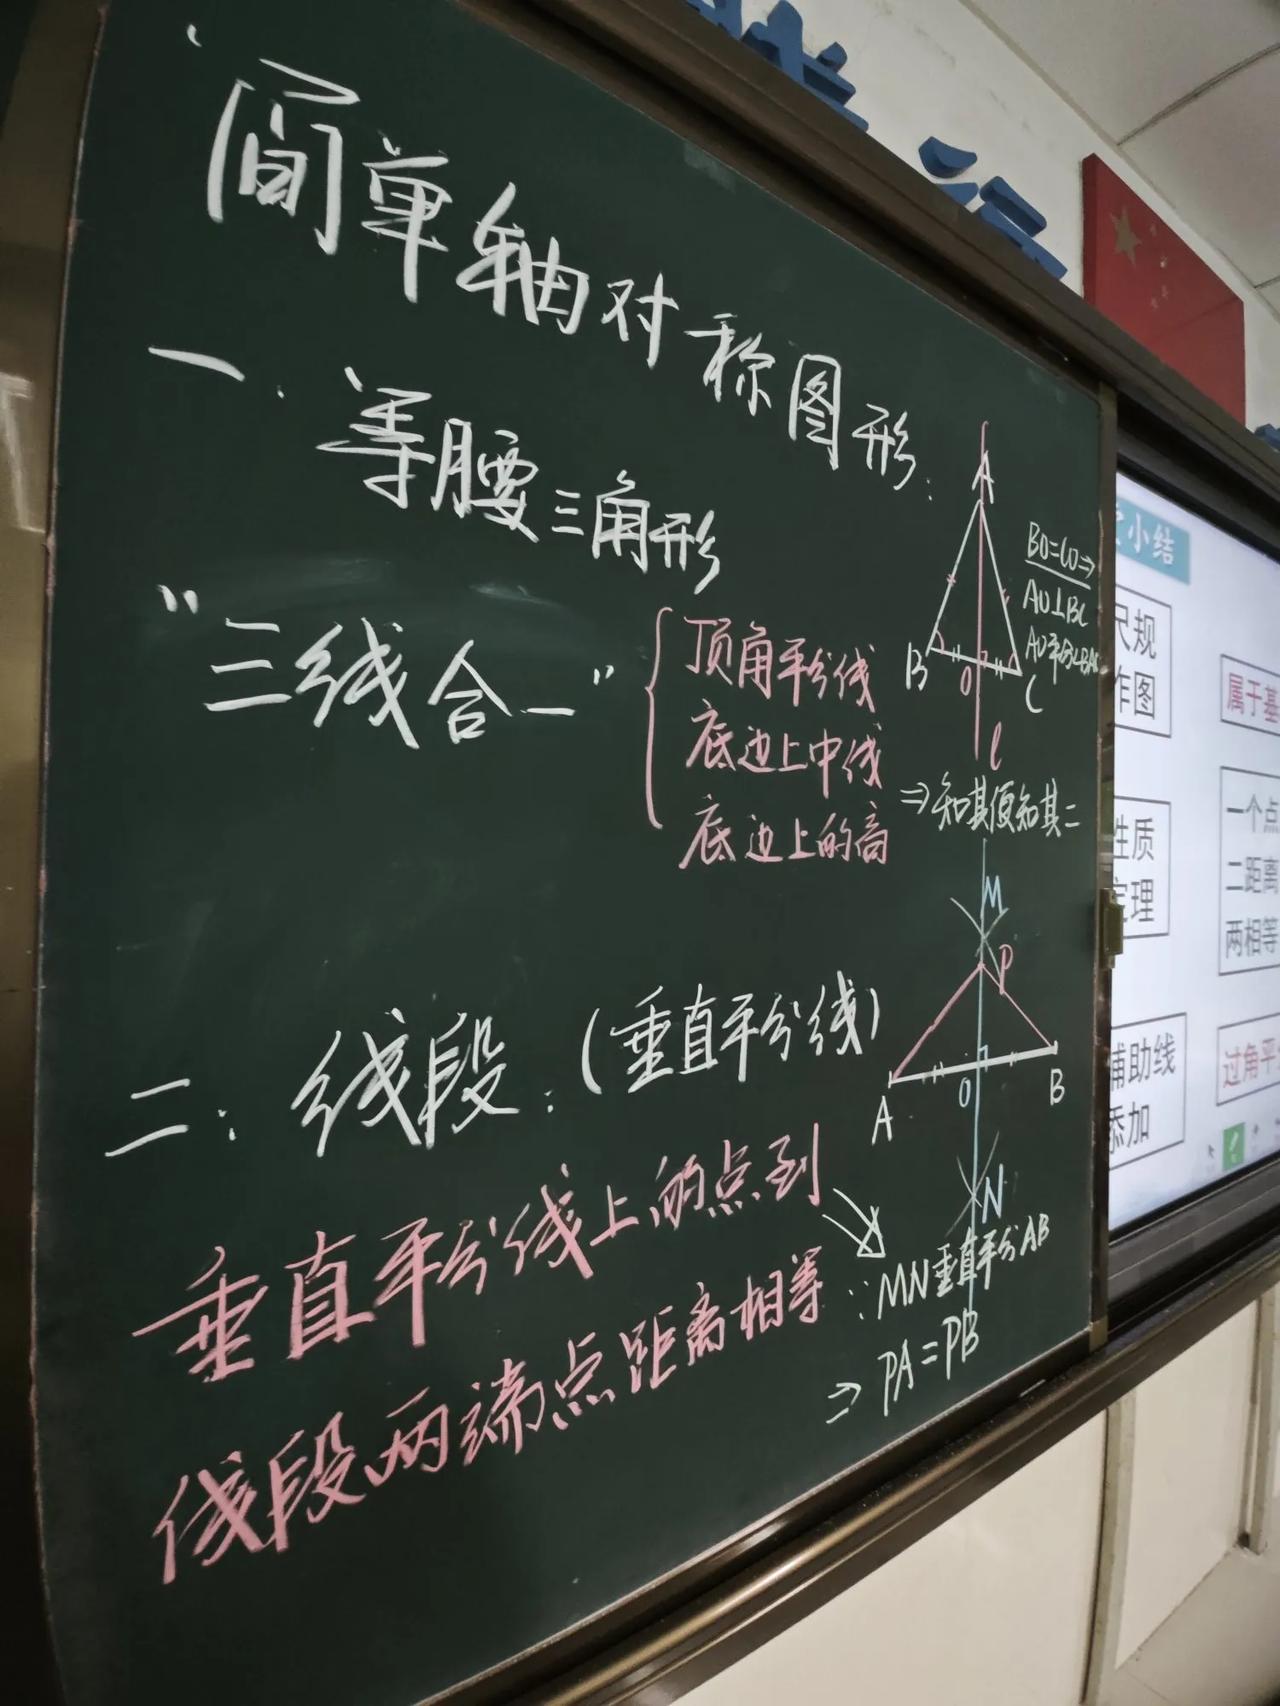 简单轴对称图形:
一. 等腰三角形
"三线合一"
顶角平分线
底边上中线
底边上的高
⇒知其一便知其二
A
B
O
C
l
BO=CO⇒
AO⊥BC
AO平分∠BAC
二: 线段: (垂直平分线)
M
P
A
O
B
N
垂直平分线上的点到
线段两端点距离相等
∵MN垂直平分AB
⇒ PA=PB
小结
尺规
作图
属于基
性质
定理
一个点
二距离
两相等
辅助线
添加
过角平